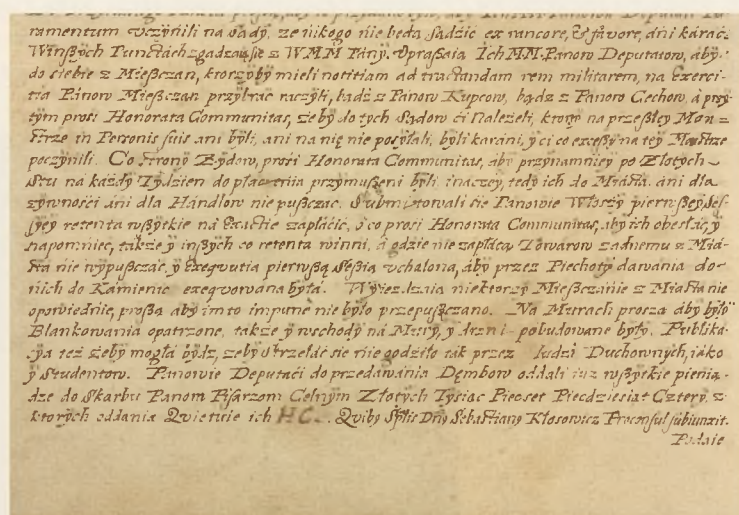 ramentum uczÿnili na sądy, ze nikogo nie będą sądzic ex rancore, & favore, ani karać
Winßÿch Punctách zgadzaią się z W.MM Pány. Upraßaią Ich MM. Panow Deputatow, abÿ
do siebie z Mießczan, ktorzÿbÿ mieli notitiam ad tractandam rem militarem, na Exerci-
tia Pánow Mießczan przÿbrac raczÿli, bądź z Panow Kupcow, bądz z Panow Cechow, á przÿ
tÿm prosi Honorata Communitas, żebÿ do tÿch Sądow ci Należeli, ktorzÿ na przeßłeÿ Mon=
strze in Personis suis ani bÿli, ani na nię nie posÿłali, bÿli karáni, ÿ ci co excessÿ na teÿ Mustrze
poczÿnili. Co strony Zÿdow, prosi Honorata Communitas, abÿ przÿnamnieÿ po Złotÿch
Stu na káżdÿ Tÿdzien do płacenia przÿmußeni bÿli, inaczeÿ, tedÿ ich do Miásta, ani dla
zÿwności ani dla Hándlow nie pußczac. Submitowali się Panowie Włoßÿ pierwßeÿ Ses-
sÿeÿ retenta wßÿtkie na Exactie zapłácic, o co prosi Honorata Communitas, abÿ ich obesłać, ÿ
napomniec, także ÿ inßÿch co retenta winni, á gdzie nie zapłácą Towarow zadnemu z Miá-
sta nie wÿpußczác, ÿ Exeqvutia pierwßą Seßią uchalona, abÿ przez Piechotÿ dawania do
nich do Kámienic exeqvowana bÿłá. Wÿiezdzaią niektorzÿ Mießczánie z Miásta nie
opowiednie, proßą abÿ im to impune nie bÿło przepußczano. Na Murach proszą ábÿ bÿło
Blankowania opatrzone, takze ÿ wschodÿ ná Murÿ, ÿ Arzni pobudowane bÿłÿ. Publiká-
cÿa też żebÿ mogłá bÿdź, zebÿ strzeláć się nie godziło tak przez ludzi Duchownÿch, iáko
ÿ Studentow. Pánowie Deputaći do przedáwánia Dębow oddali iuż wßÿtkie pienią-
dze do Skarbu Panom Pisarzom Celnÿm Złotÿch Tÿsiąc Piecset Piecdziesiat Cztery, z
ktorÿch oddánia Qvietuie ich HC. Qviby Sptis Dnÿ Sebastiany Kłosowicz Proconsul subiunxit.
Podáie